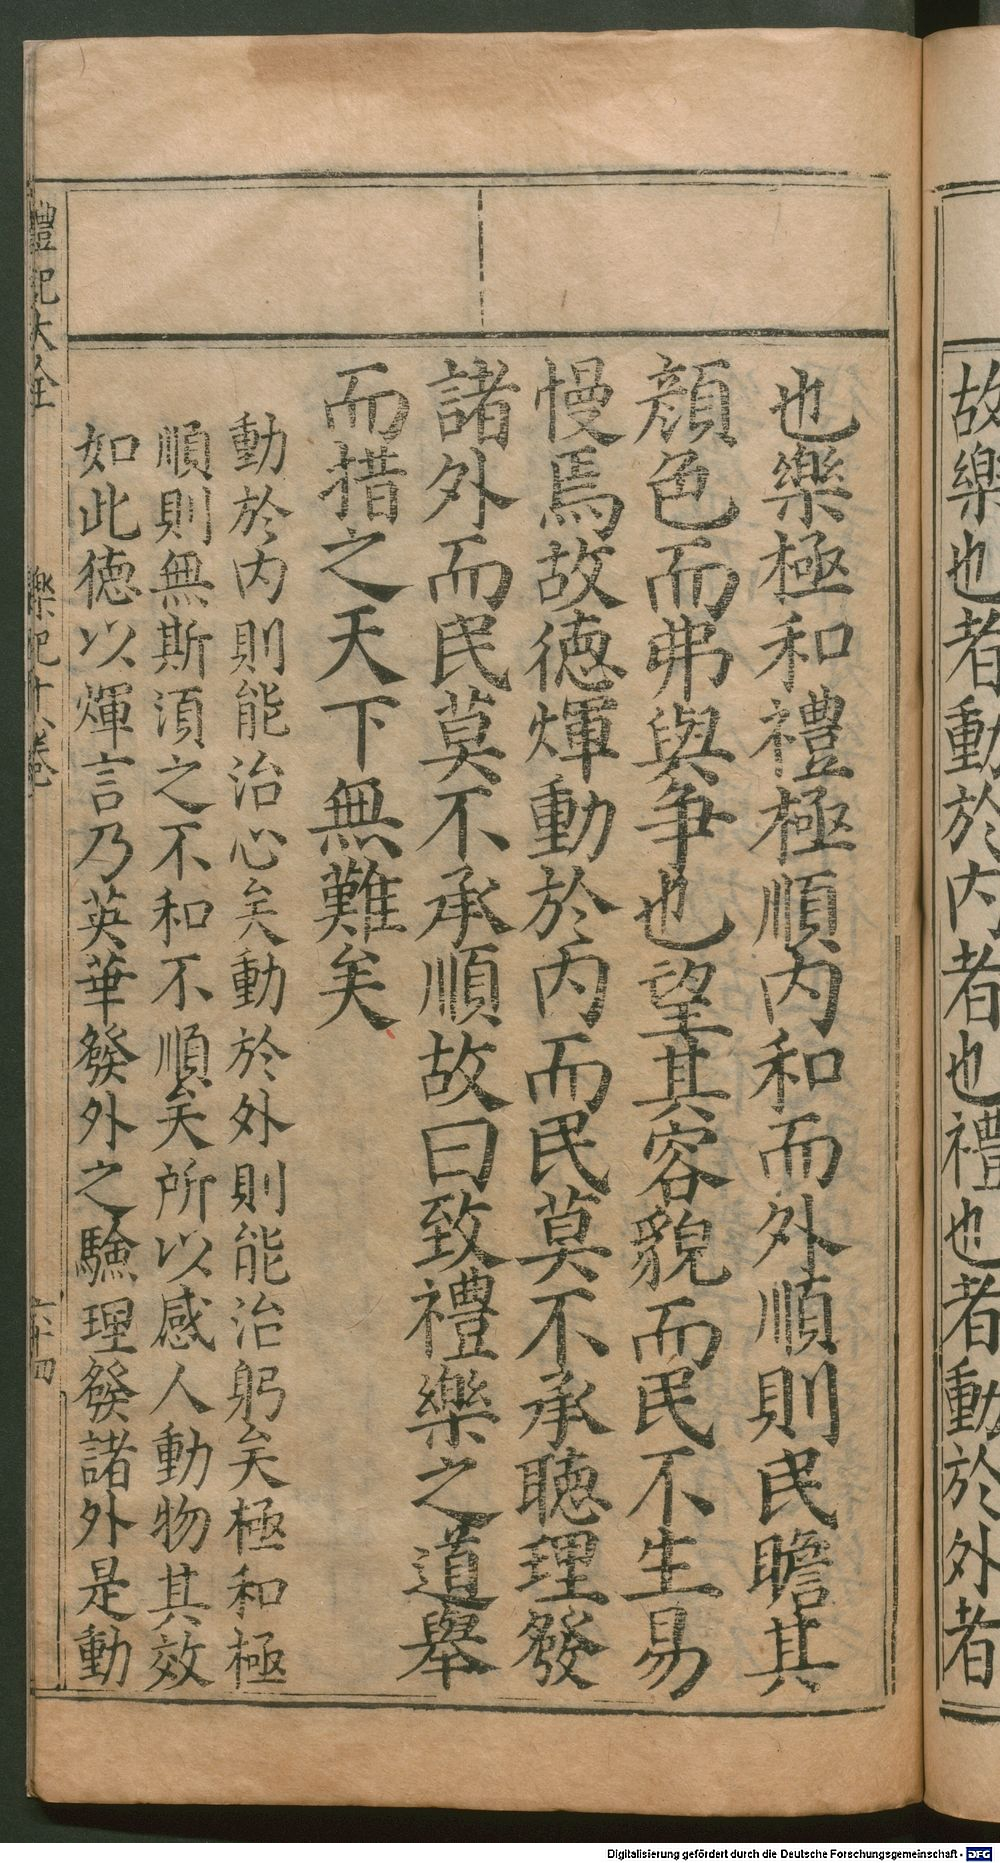 故樂也者動於内者也禮也者動於外者
也樂極和禮極順内和而外順則民瞻其
顔色而弗與争也望其容貌而民不生易
慢焉故徳煇動於内而民莫不承聴理發
諸外而民莫不承順故曰致禮樂之道舉
而措之天下無難矣
動於内則能治心矣動於外則能治躬矣極和極
順則無斯須之不和不順矣所以感人動物其效
如此徳以煇言乃英華發外之驗理發諸外是動
禮記大全 樂記十八卷 六十四
Digitalisierung gefördert durch die Deutsche Forschungsgemeinschaft - DFG